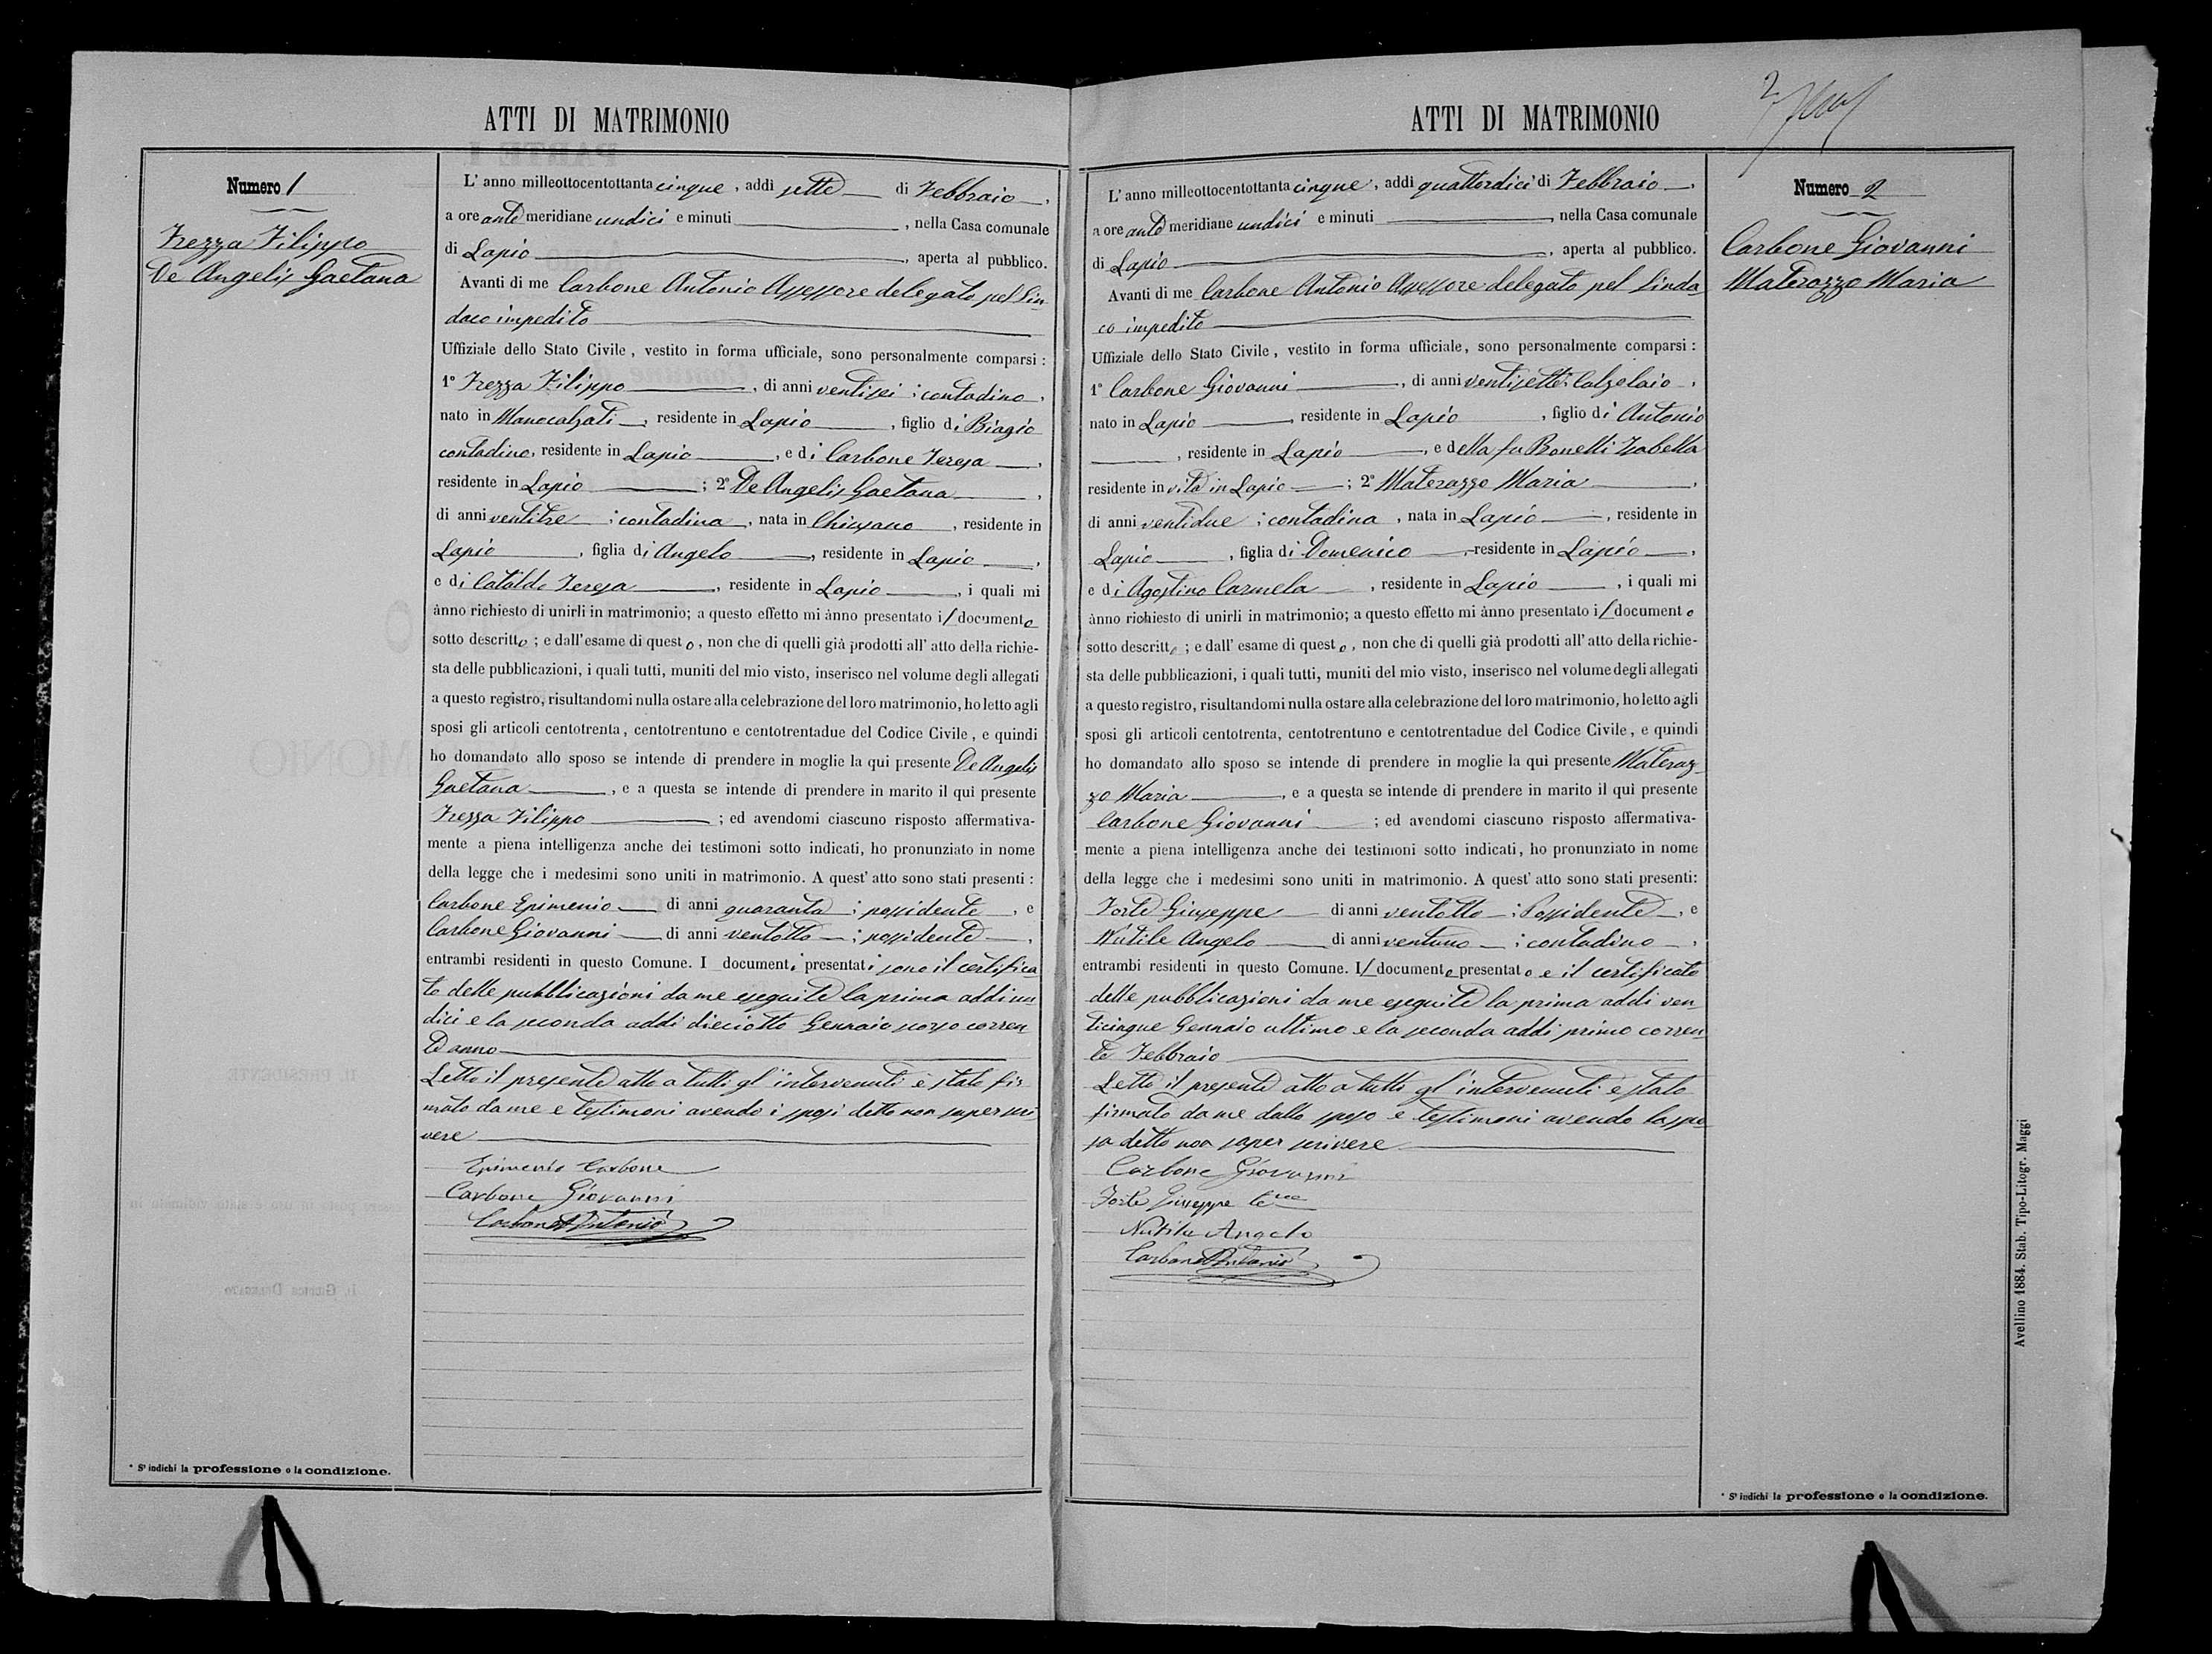 ATTI DI MATRIMONIO
Numero 1
Frezza Filippo
De Angelis Gaetana
L'anno milleottocentottanta cinque, addi sette di Febbraio,
a ore ante meridiane undici e minuti, nella Casa comunale
di Lapio, aperta al pubblico.
Avanti di me Carbone Antonio Assessore delegato pel Sin-
daco impedito
Uffiziale dello Stato Civile, vestito in forma ufficiale, sono personalmente comparsi:
1° Frezza Filippo, di anni ventisei; contadino,
nato in Manocalzati, residente in Lapio, figlio di Biagio
contadino, residente in Lapio, e di Carbone Teresa,
residente in Lapio; 2° De Angelis Gaetana,
di anni ventitre; contadina, nata in Chiusano, residente in
Lapio, figlia di Angelo, residente in Lapio,
e di Cataldo Teresa, residente in Lapio, i quali mi
ànno richiesto di unirli in matrimonio; a questo effetto mi ànno presentato il documento
sotto descritto; e dall'esame di questo, non che di quelli già prodotti all'atto della richie-
sta delle pubblicazioni, i quali tutti, muniti del mio visto, inserisco nel volume degli allegati
a questo registro, risultandomi nulla ostare alla celebrazione del loro matrimonio, ho letto agli
sposi gli articoli centotrenta, centotrentuno e centotrentadue del Codice Civile, e quindi
ho domandato allo sposo se intende di prendere in moglie la qui presente De Angelis
Gaetana, e a questa se intende di prendere in marito il qui presente
Frezza Filippo; ed avendomi ciascuno risposto affermativa-
mente a piena intelligenza anche dei testimoni sotto indicati, ho pronunziato in nome
della legge che i medesimi sono uniti in matrimonio. A quest'atto sono stati presenti:
Carbone Epimenio di anni quaranta; possidente, e
Carbone Giovanni di anni ventotto; possidente,
entrambi residenti in questo Comune. I documenti presentati sono il certifica
to delle pubblicazioni da me eseguite la prima addi un
dici e la seconda addi dieciotto Gennaio scorso corren
te anno
Letto il presente atto a tutti gl'intervenuti è stato fir
mato da me e testimoni avendo i sposi detto non saper scri
vere
Epimenio Carbone
Carbone Giovanni
Carbone Antonio
* S'indichi la professione o la condizione.
ATTI DI MATRIMONIO
2
Numero 2
Carbone Giovanni
Materazzo Maria
L'anno milleottocentottanta cinque, addi quattordici di Febbraio,
a ore ante meridiane undici e minuti, nella Casa comunale
di Lapio, aperta al pubblico.
Avanti di me Carbone Antonio Assessore delegato pel Sinda
co impedito
Uffiziale dello Stato Civile, vestito in forma ufficiale, sono personalmente comparsi:
1° Carbone Giovanni, di anni ventisette; Calzolaio,
nato in Lapio, residente in Lapio, figlio di Antonio
, residente in Lapio, e della fu Bonelli Isabella
residente in vita in Lapio; 2° Materazzo Maria,
di anni ventidue; contadina, nata in Lapio, residente in
Lapio, figlia di Domenico, residente in Lapio,
e di Agostino Carmela, residente in Lapio, i quali mi
ànno richiesto di unirli in matrimonio; a questo effetto mi ànno presentato il documento
sotto descritto; e dall'esame di questo, non che di quelli già prodotti all'atto della richie-
sta delle pubblicazioni, i quali tutti, muniti del mio visto, inserisco nel volume degli allegati
a questo registro, risultandomi nulla ostare alla celebrazione del loro matrimonio, ho letto agli
sposi gli articoli centotrenta, centotrentuno e centotrentadue del Codice Civile, e quindi
ho domandato allo sposo se intende di prendere in moglie la qui presente Materaz-
zo Maria, e a questa se intende di prendere in marito il qui presente
Carbone Giovanni; ed avendomi ciascuno risposto affermativa-
mente a piena intelligenza anche dei testimoni sotto indicati, ho pronunziato in nome
della legge che i medesimi sono uniti in matrimonio. A quest'atto sono stati presenti:
Forte Giuseppe di anni ventotto; Possidente, e
Nutile Angelo di anni ventuno; contadino,
entrambi residenti in questo Comune. Il documento presentato e il certificato
delle pubblicazioni da me eseguite la prima addi ven
ticinque Gennaio ultimo e la seconda addi primo corren
te Febbraio
Letto il presente atto a tutti gl'intervenuti è stato
firmato da me dallo sposo e testimoni avendo la spo
sa detto non saper scrivere
Carbone Giovanni
Forte Giuseppe
Nutile Angelo
Carbone Antonio
* S'indichi la professione o la condizione.
Avellino 1884. Stab. Tipo-Litogr. Maggi